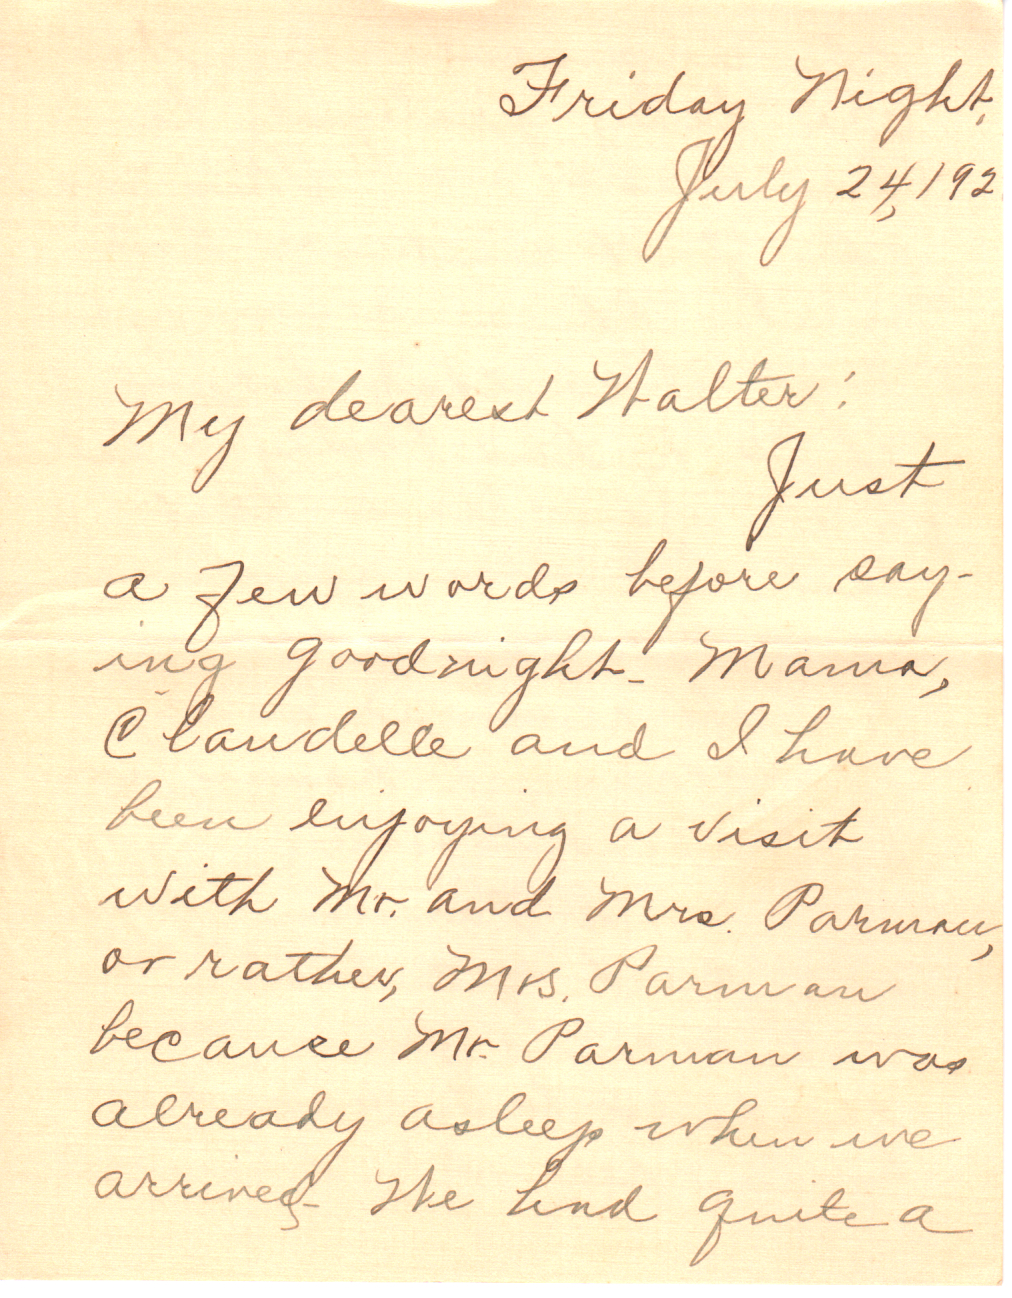 Friday Night,
July 24, 192
My dearest Walter:
Just
a few words before say-
ing goodnight. Mama,
Claudelle and I have
been enjoying a visit
with Mr. and Mrs. Parman,
or rather, Mrs. Parman
because Mr. Parman was
already asleep when we
arrived. We had quite a